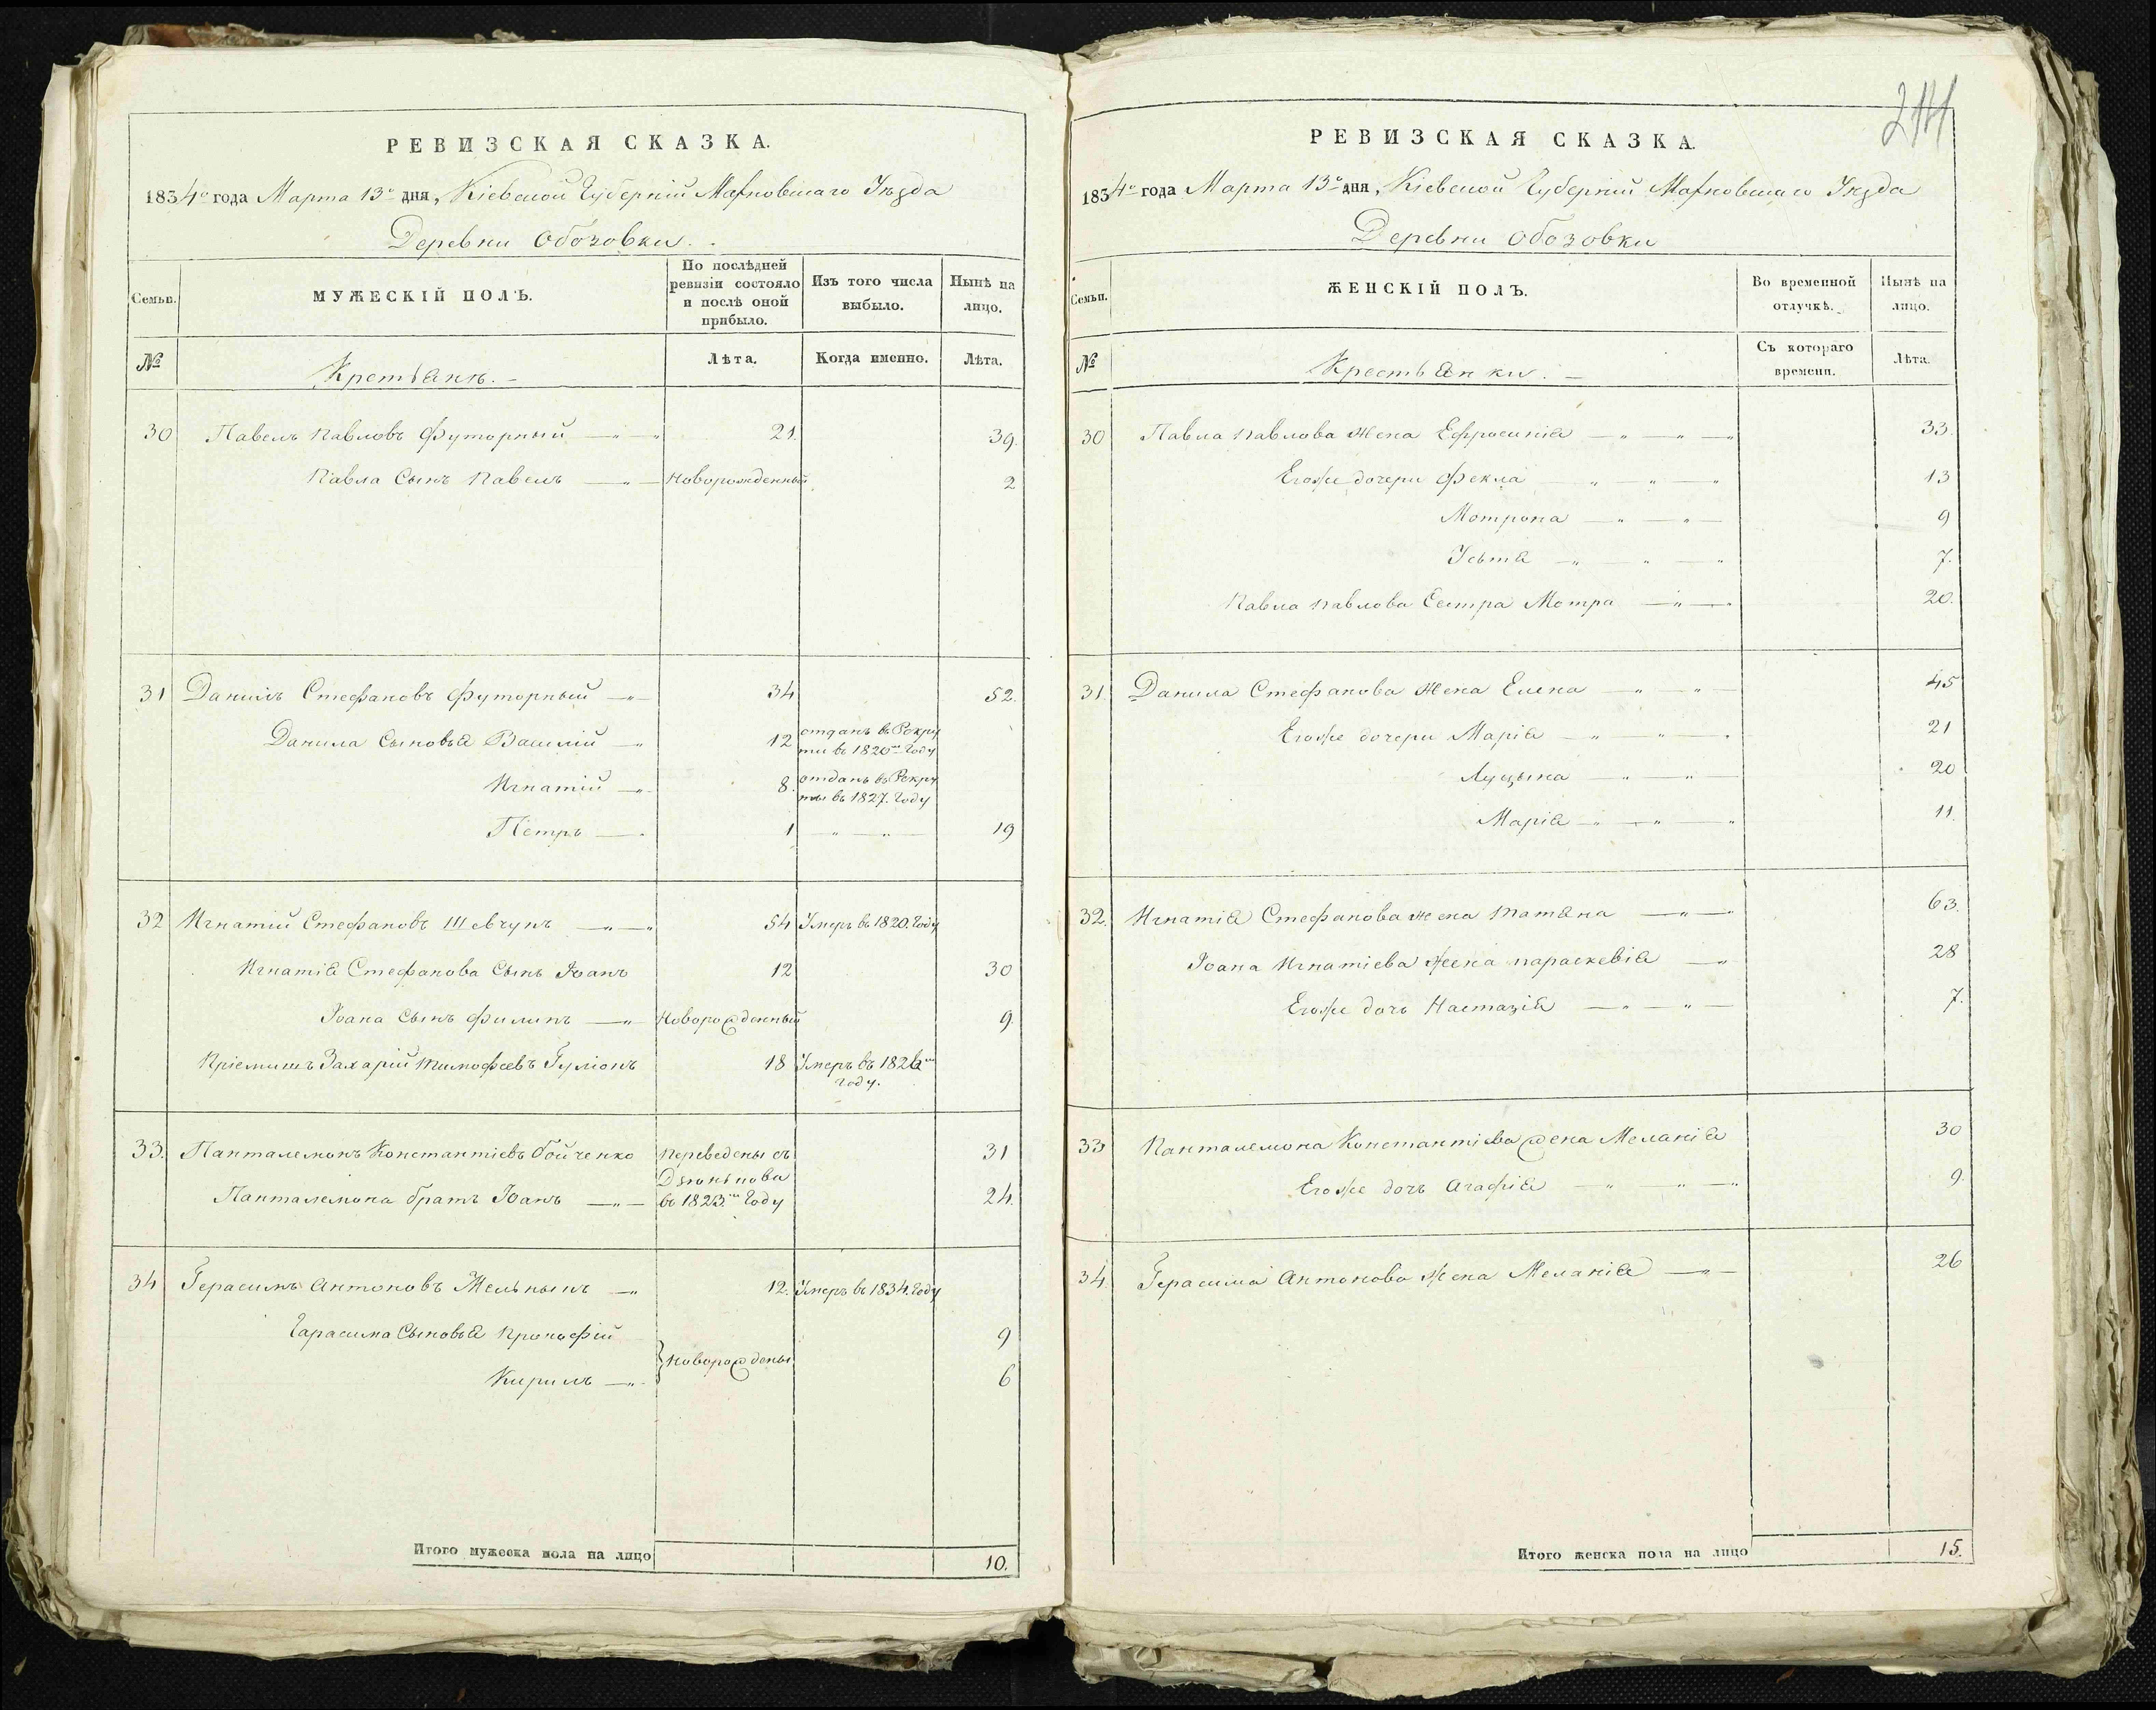 РЕВИЗСКАЯ СКАЗКА.
1834го года Марта 13го дня, Кіевской Губерніи Махновскаго Уѣзда
Деревни Обозовки.
Семьи.
МУЖЕСКІЙ ПОЛЪ.
По послѣдней ревизіи состояло и послѣ оной прибыло.
Изъ того числа выбыло.
Нынѣ на лицо.
№
Крестьянъ. —
Лѣта.
Когда именно.
Лѣта.
30 Павелъ Павловъ Футорный — " — " 21. 39.
Павла Сынъ Павелъ — " — Новорожденный 2
31 Данилъ Стефановъ Футорный — " — 34 52.
Данила Сыновья Василій — " 12 отданъ въ Рекруты въ 1820м Году
Игнатій — " 8. отданъ въ Рекруты въ 1827. Году
Петръ — " 1 — " — " — 19
32 Игнатій Стефановъ Шевчукъ — " — " 54 Умеръ въ 1820. Году
Игнатія Стефанова Сынъ Іоанъ 12 30
Іоана Сынъ Филипъ — " Новорожденный 9.
Пріемышъ Захарій Тимофеевъ 18 Умеръ въ 1826м Году.
33. Панталемонъ Константіевъ Бойченко Переведены съ 31
въ 1823.м Году
Панталемона братъ Іоанъ — " — 24.
34 Герасимъ Антоновъ 12. Умеръ въ 1834. Году
Гарасима Сыновья Прокофій 9
} Новорождены
Кирилъ — " — 6
Итого мужеска пола на лицо 10.
РЕВИЗСКАЯ СКАЗКА.
1834го года Марта 13го дня, Кіевской Губерніи Махновскаго Уѣзда
Деревни Обозовки
Семьи.
ЖЕНСКІЙ ПОЛЪ.
Во временной отлучкѣ.
Нынѣ на лицо.
№
Крестьянки. —
Съ котораго времени.
Лѣта.
30 Павла Павлова Жена Ефросинія — " — " — 33.
Егоже дочери Фекла — " — " — " 13
Мотрона — " — " — 9
Устя — " — " — " 7.
Павла Павлова Сестра Мотра — " — " 20.
31. Данила Стефанова Жена Елена — " — " — 45
Егоже дочери Марія — " — " — " 21
Луцына — " — " — 20
Марія — " — " — " 11.
32. Игнатія Стефанова жена Татяна — " — " 63.
Іоана Игнатіева Жена параскевія — " 28
Егоже дочь Настазія — " — " — 7.
33 Панталемона Константіева жена Меланія 30
Егоже дочь Агафія — " — " — " 9.
34. Герасима Антонова Жена Меланія — " — 26
Итого женска пола на лицо 15.